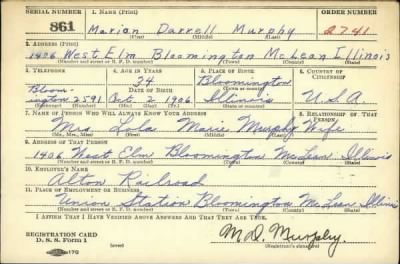 SERIAL NUMBER 1. NAME (Print) ORDER NUMBER
861 Marian Darrell Murphy 2741
(First) (Middle) (Last)
2. ADDRESS (Print)
1406 West Elm Bloomington McLean Illinois
(Number and street or R. F. D. number) (Town) (County) (State)
3. TELEPHONE 4. AGE IN YEARS 5. PLACE OF BIRTH 6. COUNTRY OF CITIZENSHIP
34 Bloomington
Bloom- DATE OF BIRTH (Town or county)
ington 2591 Oct 2 1906 Illinois U.S.A.
(Exchange) (Number) (Mo.) (Day) (Yr.) (State or country)
7. NAME OF PERSON WHO WILL ALWAYS KNOW YOUR ADDRESS 8. RELATIONSHIP OF THAT PERSON
Mrs Lola Marie Murphy Wife
(Mr., Mrs., Miss) (First) (Middle) (Last)
9. ADDRESS OF THAT PERSON
1406 West Elm Bloomington McLean Illinois
(Number and street or R. F. D. number) (Town) (County) (State)
10. EMPLOYER'S NAME
Alton Railroad
11. PLACE OF EMPLOYMENT OR BUSINESS
Union Station Bloomington McLean Illinois
(Number and street or R. F. D. number) (Town) (County) (State)
I AFFIRM THAT I HAVE VERIFIED ABOVE ANSWERS AND THAT THEY ARE TRUE.
REGISTRATION CARD
D. S. S. Form 1 M.D. Murphy
(Registrant's signature)